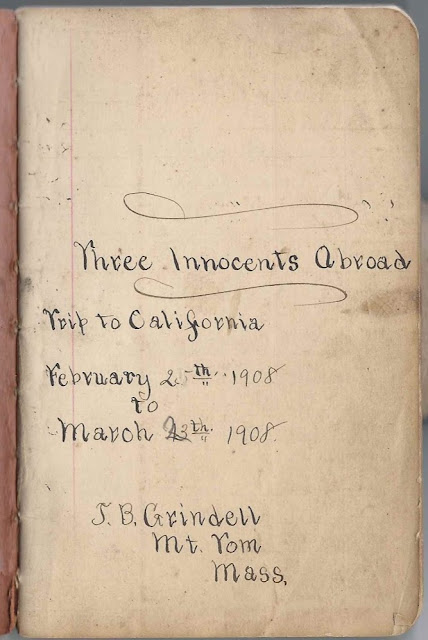 Three Innocents Abroad
Trip to California
February 25th 1908
to
March 23th. 1908.
J. B. Grindell
Mt. Tom
Mass.